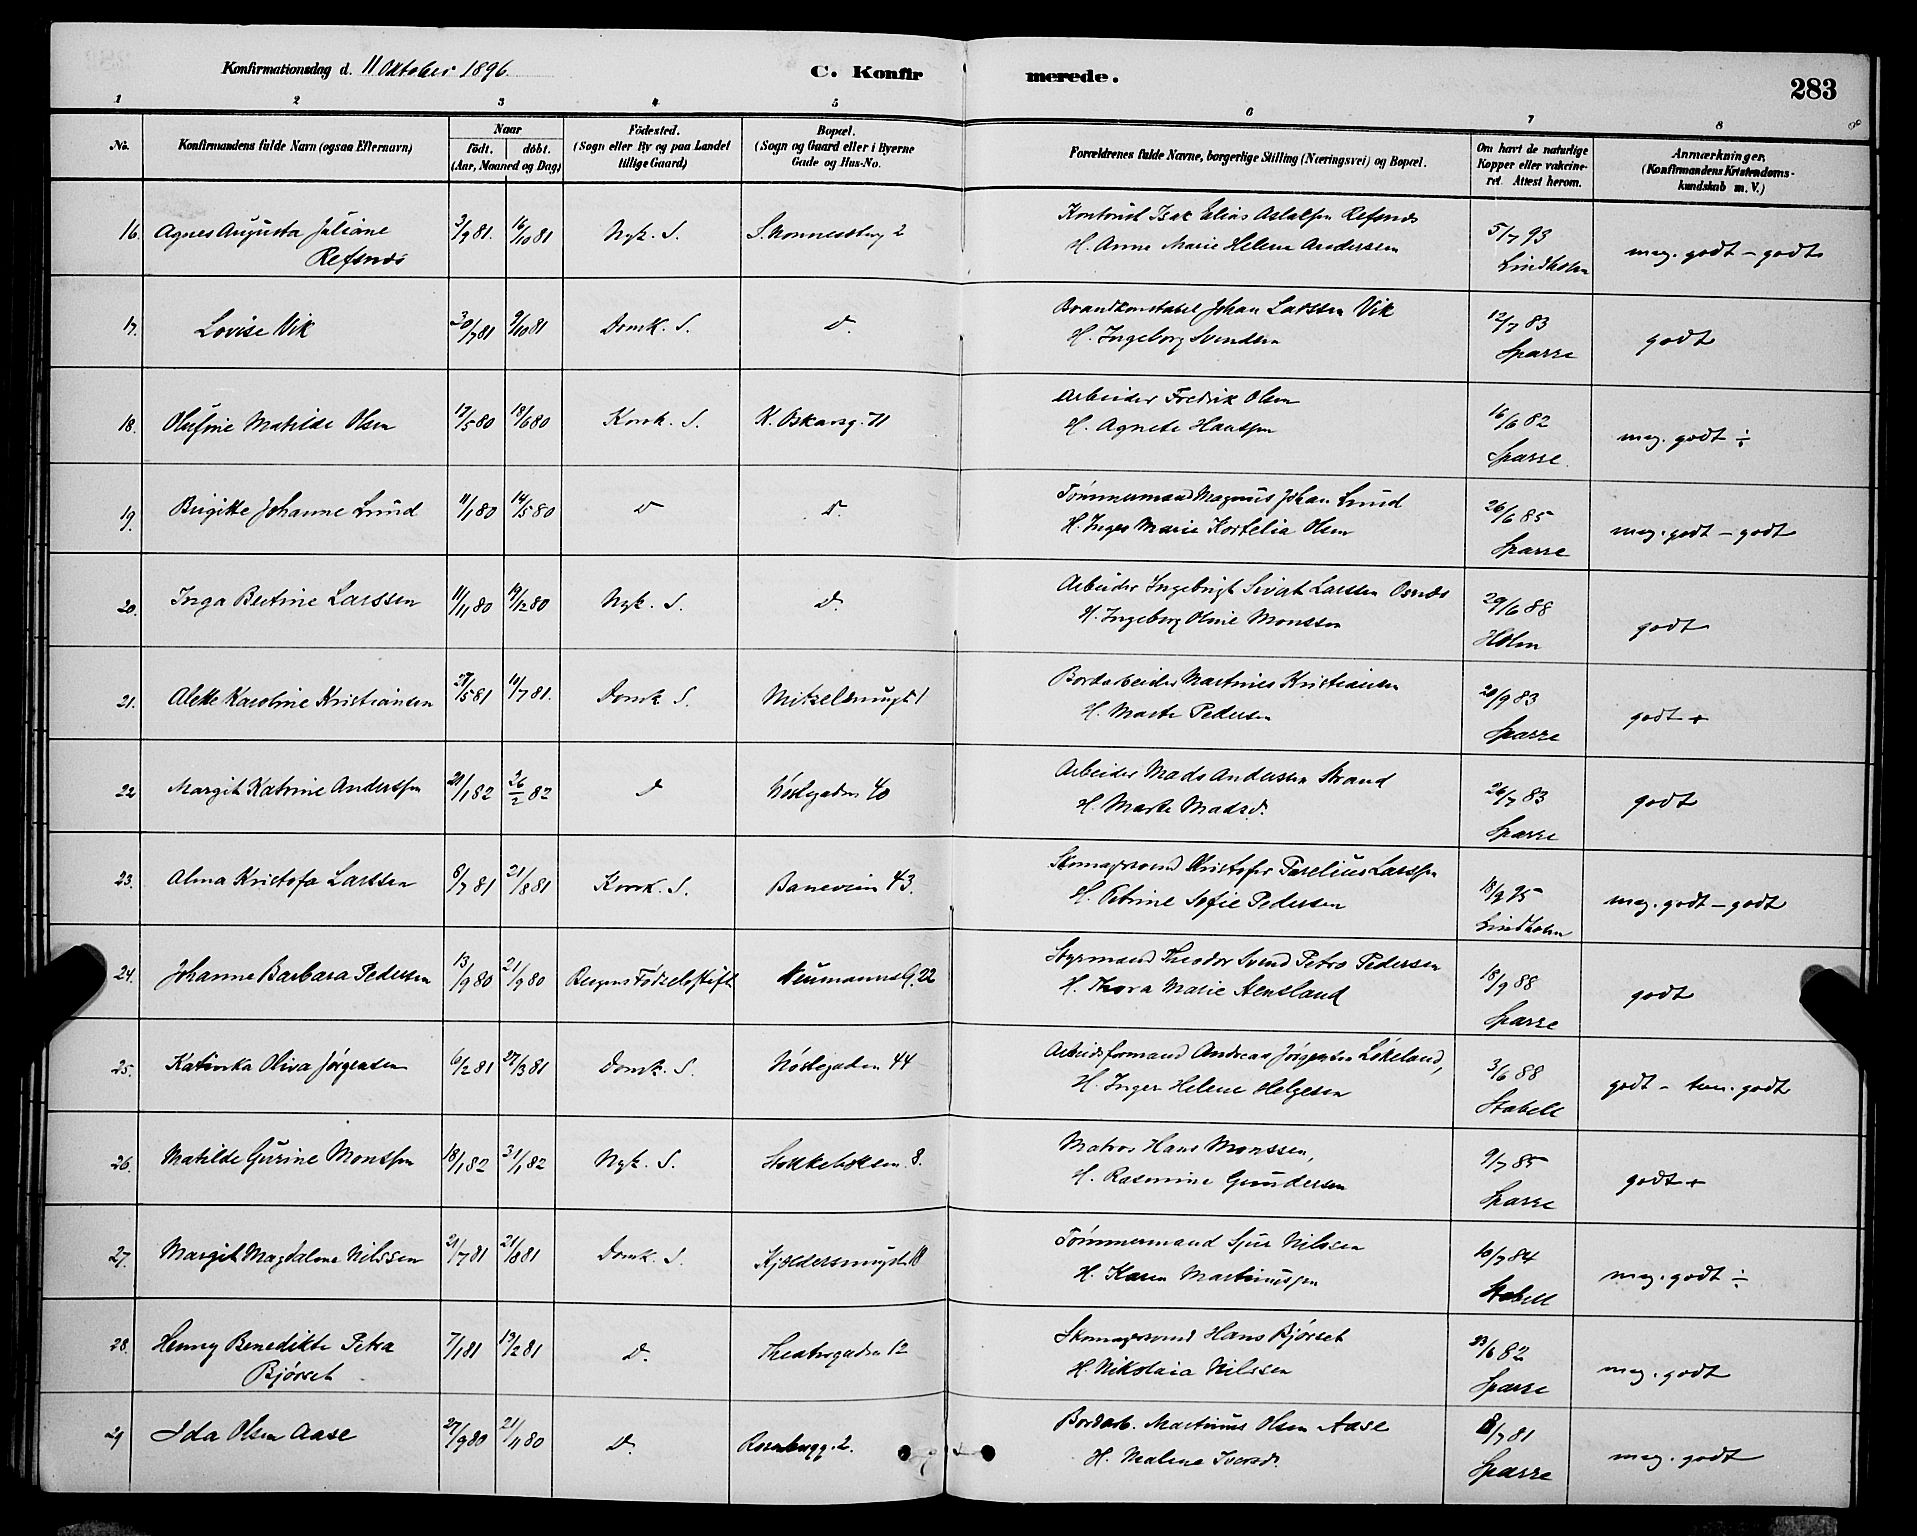 Konfirmationsdag d. 11 Oktober 1896.
C. Konfirmerede.
283
1 2 3 4 5 6 7 8
No.
Konfirmandens fulde Navn (ogsaa Efternavn)
Naar
født. døbt.
(Aar, Maaned og Dag)
Fødested.
(Sogn eller By og paa Landet
tillige Gaard)
Bopæl.
(Sogn og Gaard eller i Byerne
Gade og Hus-No.
Forældrenes fulde Navne, borgerlige Stilling (Næringsvei) og Bopæl.
Om havt de naturlige
Kopper eller vakcine-
ret. Attest herom.
Anmærkninger.
(Konfirmandens Kristendoms-
kundskab m. V.)
16. Agnes Augusta Juliane
Refsnæs
3/9 81. 16/10 81 Nyk. S.
Kontorist Isak Elias Aslaksen Refsnæs
H. Anne Marie Helene Anderssen
5/7 93
Lindholm
meg. godt - godt
17. Lovise Vik
30/7 81 9/10 81 Domk. S. D.
Brandkonstabel Johan Larssen Vik
H. Ingeborg Svendsen
12/7 83
Sparre
godt
18. Olufine Matilde Olsen
17/5 80 18/6 80 Korsk. S. K. Oskarsg. 71
Arbeider Fredrik Olsen
H. Agnete Hanssen
16/6 82
Sparre.
meg. godt ÷
19. Birgitte Johanne Lund
11/1 80 14/5 80 D D
Tømmermand Magnus Johan Lund
H. Inger Marie Kornelia Olsen
26/6 85
Sparre
meg. godt - godt
20. Inga Bertine Larssen
11/11 80 19/12 80 Nyk. S. D.
Arbeider Ingebrigt Sivert Larssen Osnæs
H. Ingeborg Oline Monssen
29/6 88
Holm
godt
21. Alette Karoline Kristiansen
27/5 81 10/7 81. Domk S.
Bordarbeider Martines Kristiansen
H. Marte Pedersen
20/9 83
Sparre
godt +
22 Margit Katrine Anderssen
20/1 82 26/2 82 D Nöstegaden 40
Arbeider Mads Andersen Strand
H. Marte Madsd.
26/7 83
Sparre
godt
23. Alma Kristofa Larssen
6/7 81 21/8 81 Korsk. S. Baneveien 43.
Skomagersvend Kristofer Larssen
H. Petrine Sofie Pedersen
18/9 95
Lindholm
meg. godt - godt
24. Johanne Barbara Pedersen
13/9 80 21/9 80 Bergens Fødselsstift Neumannsg. 22
Styrmand Theodor Svend Petro Pedersen
H. Thora Marie Aensland
18/9 88
Sparre
godt
25. Katinka Oliva Jørgensen
6/2 81 27/3 81 Domk. S. Nöstegaden 44
Arbeidsformand Andreas Jørgensen Løkeland,
H. Inger Helene Helgesen
3/6 88
Stabell
godt - tem. godt
26. Matilde Gurine Monssen
18/1 82 31/1 82 Nyk. S. 8.
Matros Hans Monssen,
H. Rasmine Gundersen
9/7 85
Sparre
godt +
27. Margit Magdalene Nilssen
21/7 81 21/8 81 Domk. S.
Tømmermand Sjur Nilssen
H. Karen Martinussen
10/7 84
Stabell
meg. godt ÷
28. Henny Benedikte Petra
Bjørset
7/1 81 13/2 81 D. Theatergaden 12
Skomagersvend Hans Bjørset
H. Nikolaia Nilssen
23/6 82
Sparre
meg. godt
29 Ida Olsen Aase
27/9 80 21/11 80 D. Rosenbergg. 2.
Bordarb. Martinus Olsen Aase
H. Malene Iversd.
8/7 81
Sparre
meg. godt